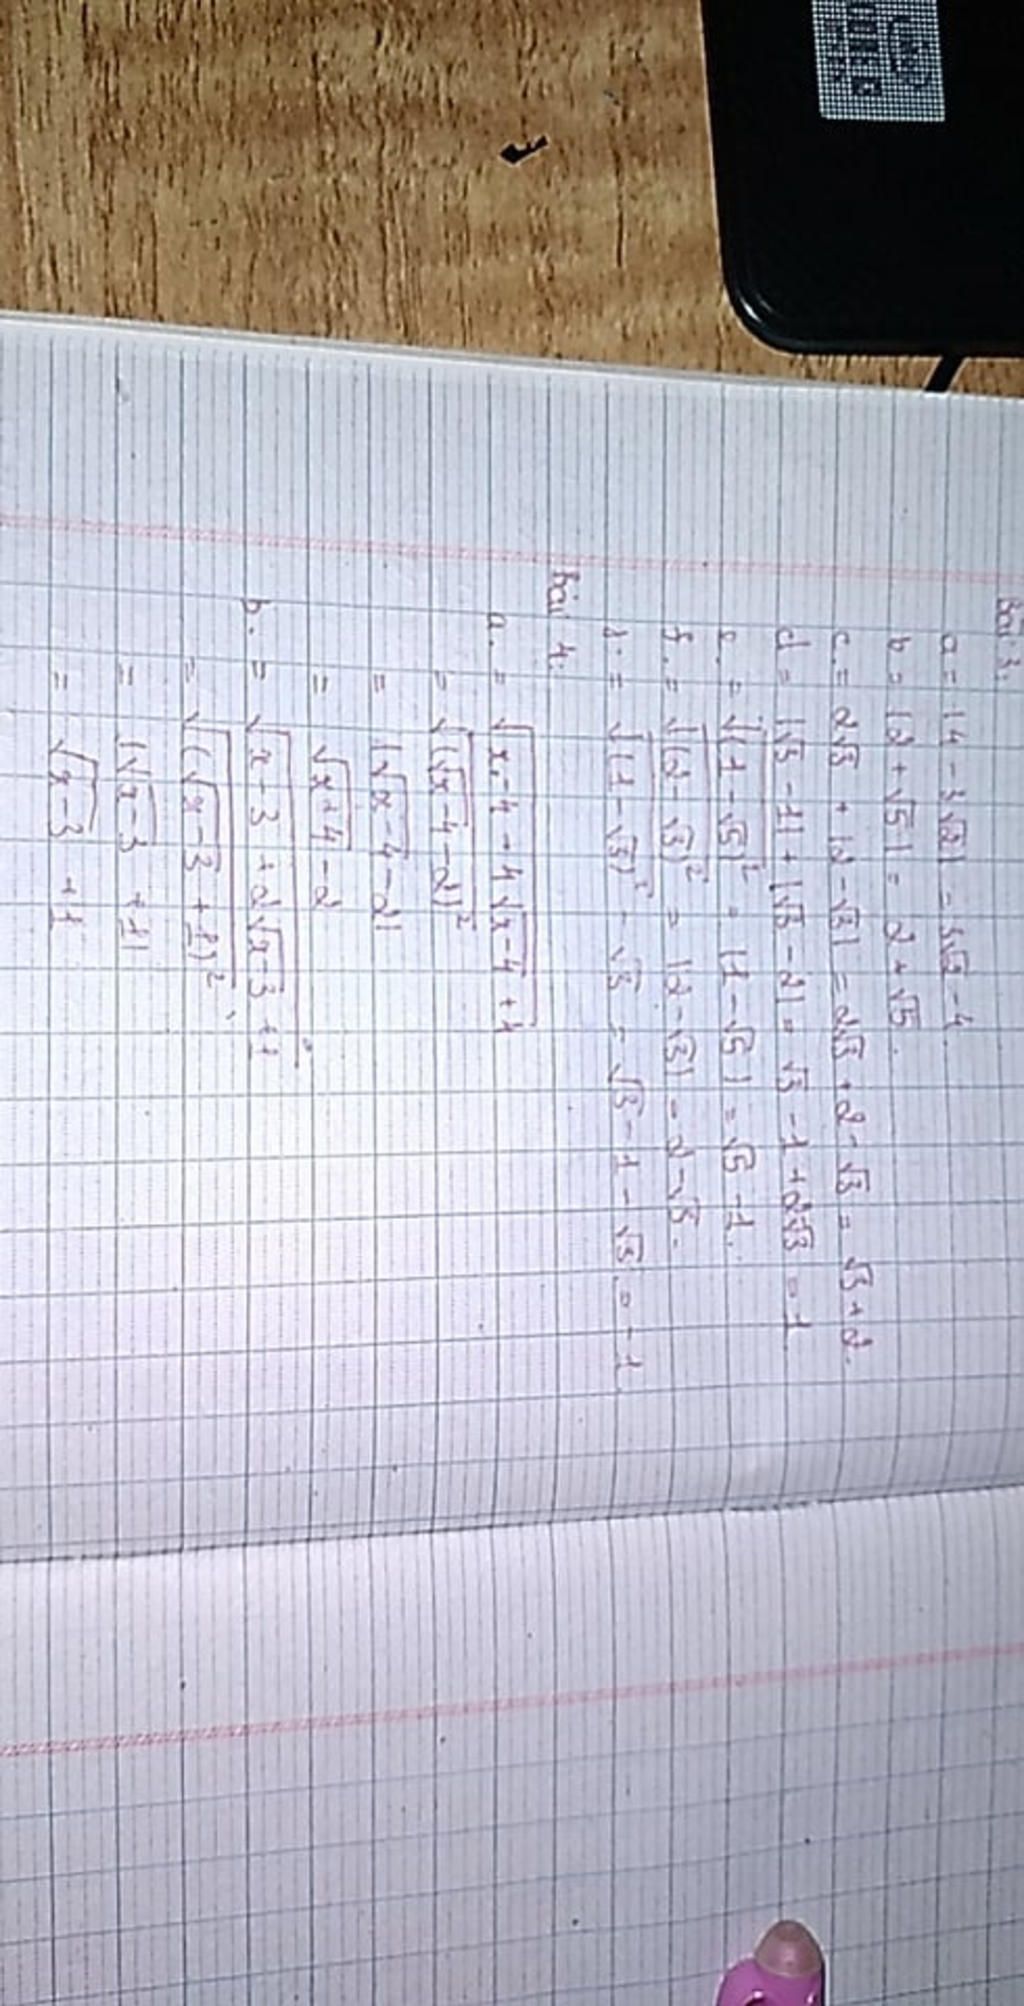 Bài 3.
a = |4 - 3√2| = 3√2 - 4
b = |2 + √5| = 2 + √5.
c. = 2√3 + |2 - √3| = 2√3 + 2 - √3 = √3 + 2.
d = |√3 - 1| + |√3 - 2| = √3 - 1 + 2 - √3 = 1
e. = √(1 - √5)² = |1 - √5| = √5 - 1.
f. = √(2 - √3)² = |2 - √3| = 2 - √3.
= √(1 - √3)² - √3 = √3 - 1 - √3 = -1
Bài 4.
a. = √x - 4 - 4√x - 4 + 4
= √(√x - 4 - 2)²
= |√x - 4 - 2|
= √x + 4 - 2
b. = √x - 3 + 2√x - 3 + 1
= √(√x - 3 + 1)²
= |√x - 3 + 1|
= √x - 3 + 1